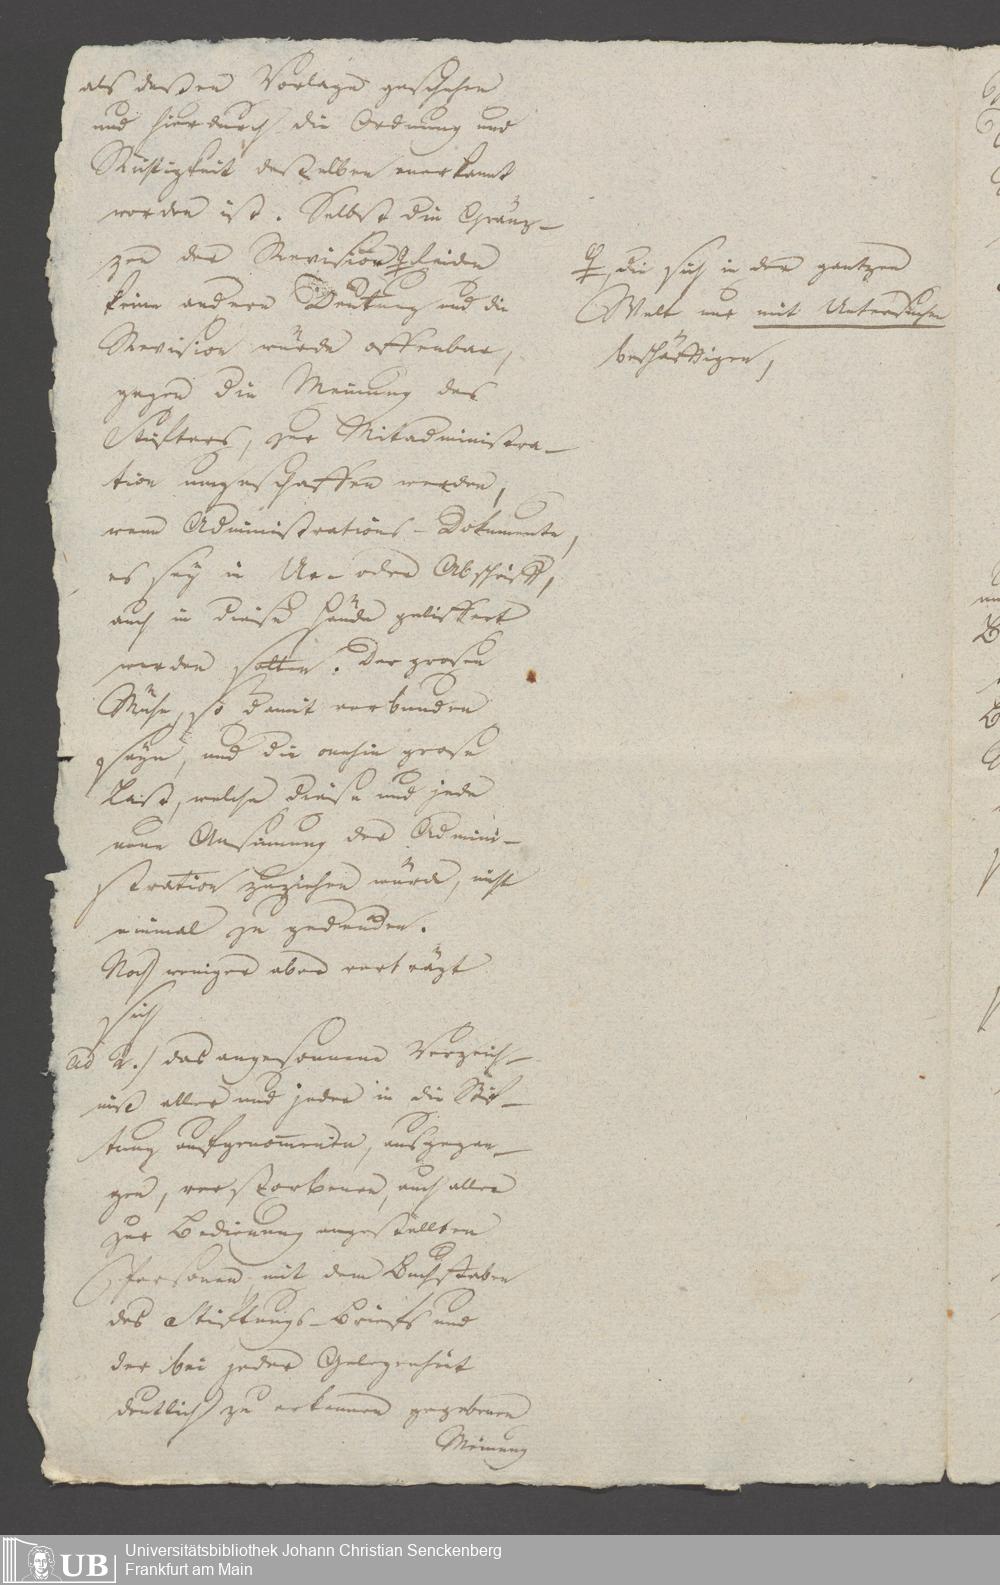 als deßen Vorlage geschehen
und hierdurch die Ordnung und
Richtigkeit deßelben anerkannt
worden ist. Selbst die Gränz-
zen der Revision leiden
keine andere Deutung und die
Revision würde offenbar,
gegen die Meinung des
Stifters, zur Mitadministra-
tion umgeschaffen werden,
wenn Administrations-Dokumente,
es sey in Ur- oder Abschrift,
auch in diese Hände geliefert
werden solten. Der grosen
Mühe, so damit verbunden
seyn, und die onehin grose
Last, welche diese und jede
neue Ansinnung der Admini-
stration zuziehen würde, nicht
einmal zu gedenken.
Noch weniger aber verträgt
sich
ad 2.) das angesonnene Verzeich-
niß aller und jeder in die Stif-
tung aufgenommenen, ausgegan-
gen, verstorbenen, auch aller
zur Bedienung angestellten
Personen mit dem Buchstaben
des Stiftungs-Briefs und
der bei jeder Gelegenheit
deutlich zu erkennen gegebenen
Meinung
die sich in der gantzen
Welt nur mit Untersuchen
beschäftigen,
UB
Universitätsbibliothek Johann Christian Senckenberg
Frankfurt am Main